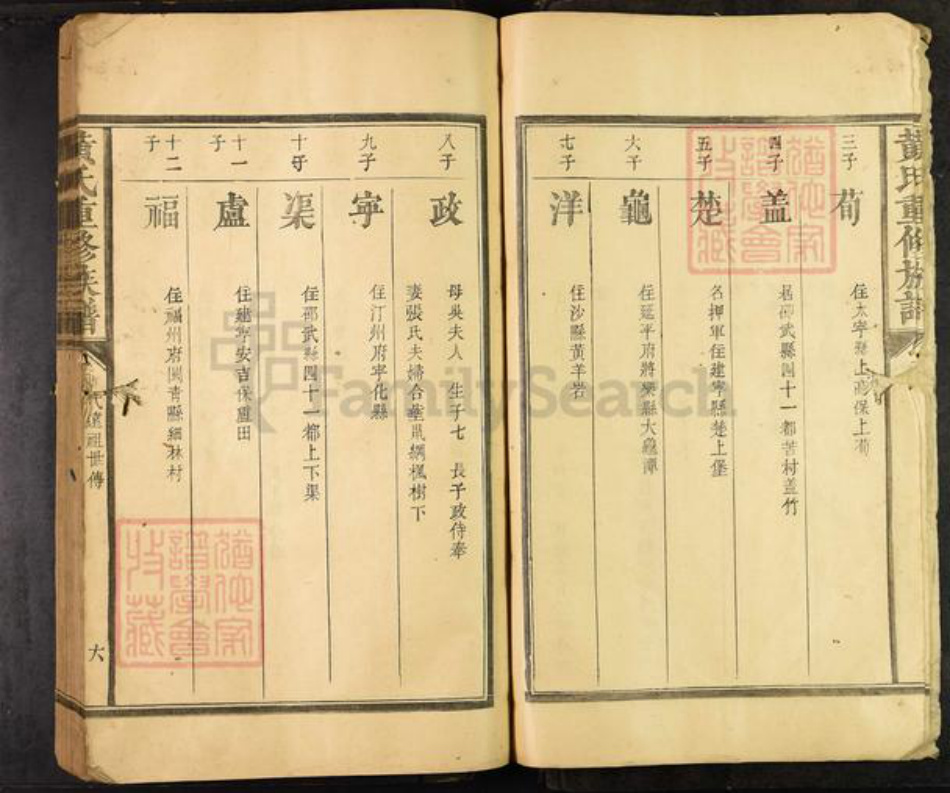 黃氏重修族譜
三子
荀
住太寧縣上高保上荀
四子
盖
居邵武縣四十一都苦村盖竹
五子
楚
名押軍住建寧縣楚上堡
六子
龜
住延平府將樂縣大龜潭
七子
洋
住沙縣黃羊岩
八子
政
母吳夫人 生子七 長子政侍奉
妻張氏夫婦合塟鳯綱楓樹下
九子
寜
住汀州府寜化縣
十子
渠
住邵武縣四十一都上下渠
十一子
盧
住建寧安吉保盧田
十二子
福
住福州府閩青縣細林村
黃氏重修族譜
遠祖世傳
六
猶他家譜學會收藏
猶他家譜學會收藏
FamilySearch